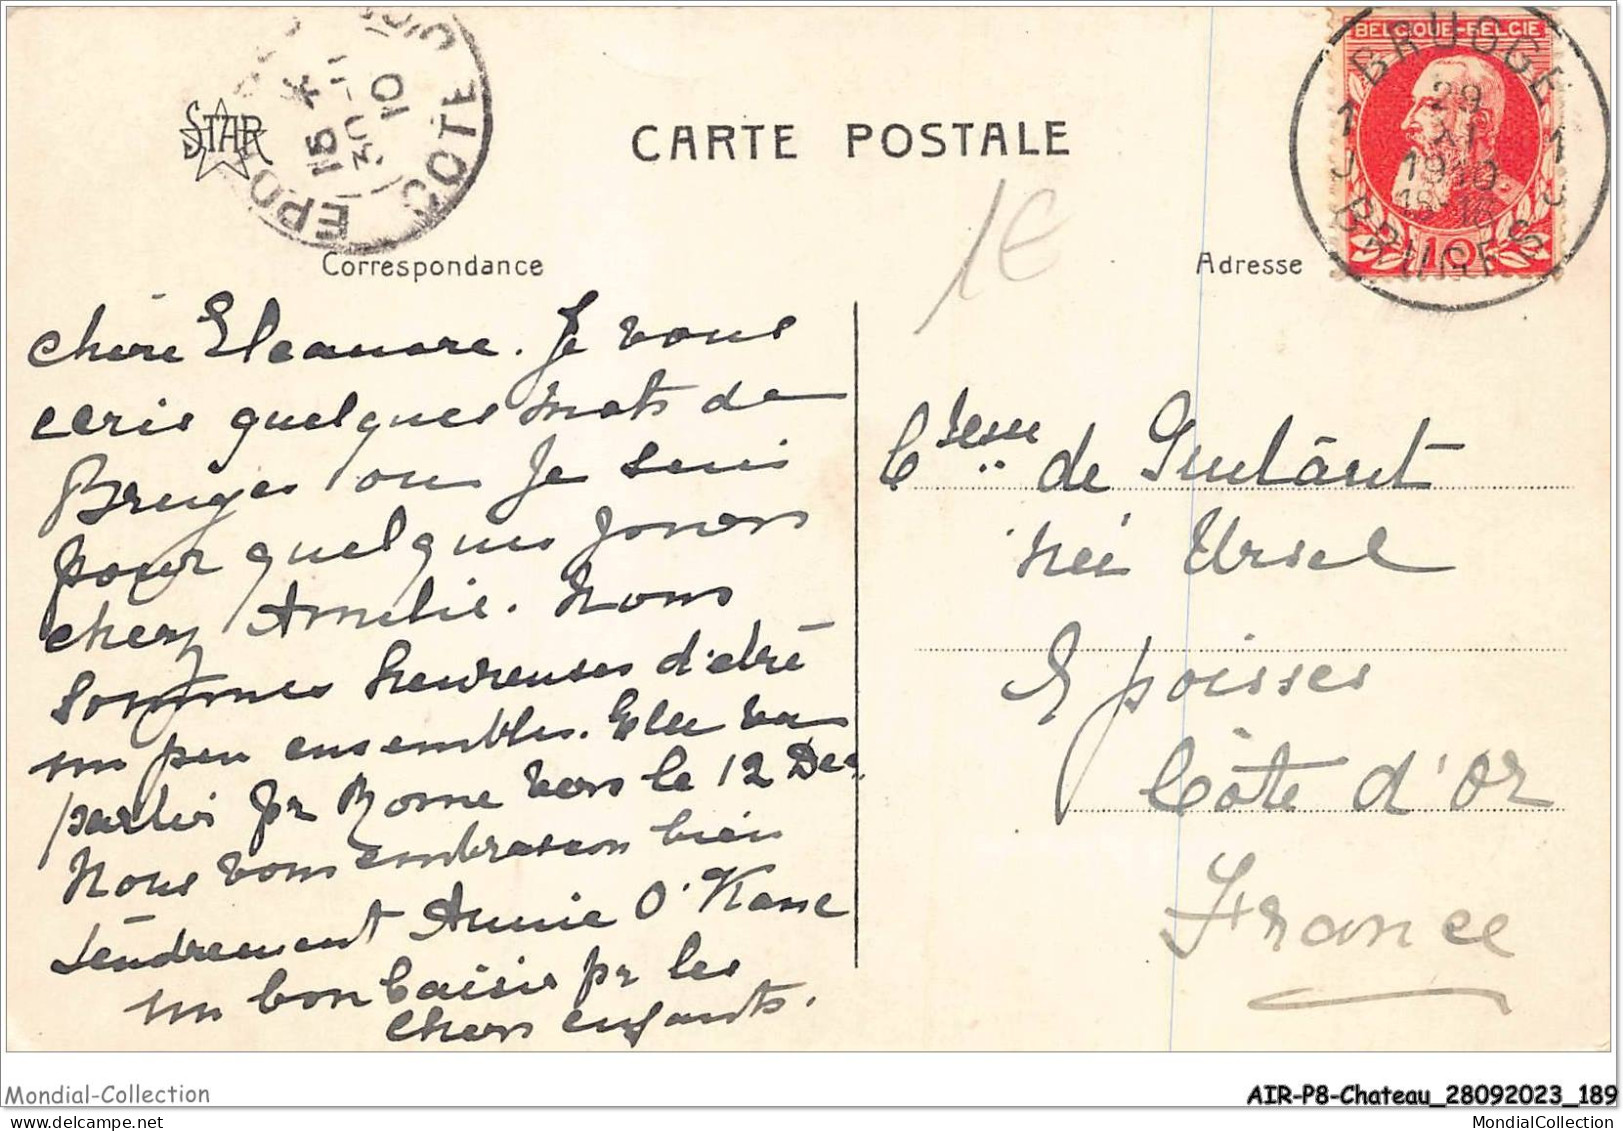 STAR
EPOISSES
15 *
30 - 11
10
COTE D'OR
CARTE POSTALE
BELGIQUE-BELGIE
10
BRUGGE
1 29 1
J XI J
1910
BRUGES
1€
Correspondance
Adresse
chère Eleanore. Je vous
ecris quelques mots de
Bruges ou je suis
pour quelques jours
chez Amélie. Nous
sommes heureuses d'etre
un peu ensembles. Elle va
partir pr Rome vers le 12 Dec.
Nous vous embrassons bien
tendrement Annie O'Kane
un bon baisir pr les
chers enfants.
Ctesse de
née Ursel
Epoisses
Côte d'Or
France
Mondial-Collection
AIR-P8-Chateau_28092023_189
MondialCollection